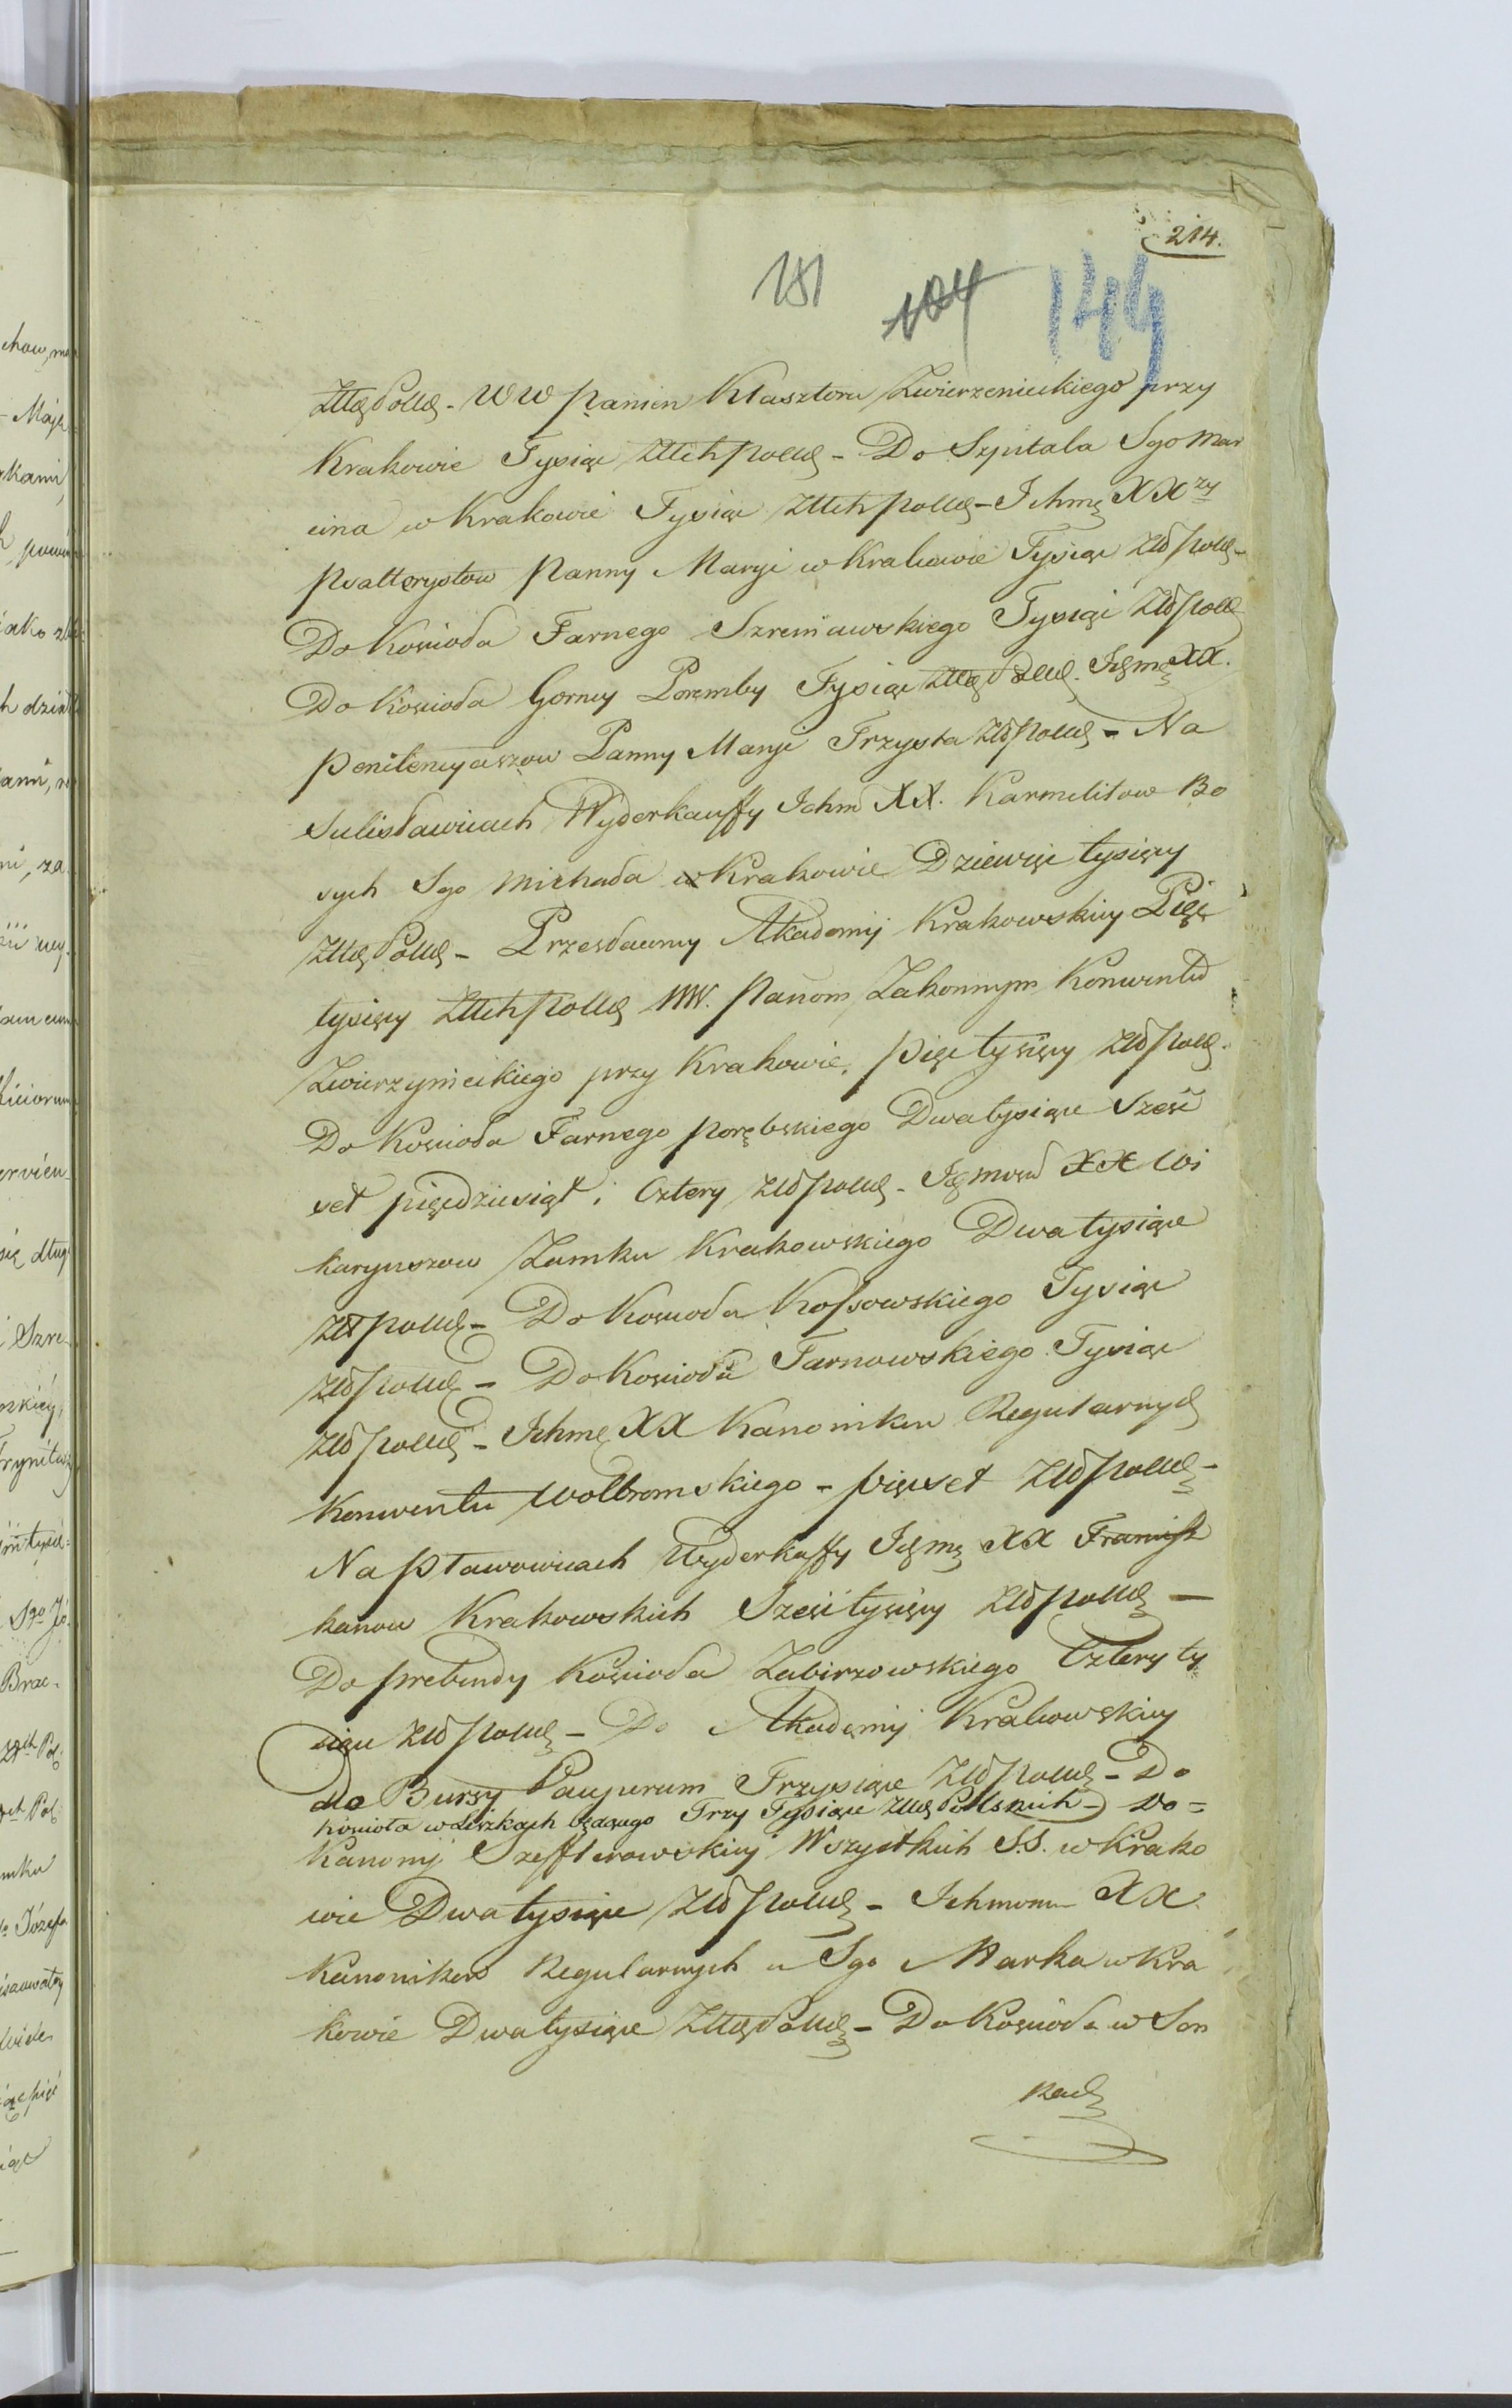 214.
181 104 149
Złłch Polch - WW Panien Klasztoru Zwierzenickiego przy
Krakowie Tysiąc Złłch polch - Do Szpitala Sgo Mar
cina w Krakowie Tysiąc Złłch polch - Ichmę XXzy
Psalterystow Panny Maryi w Krakowie Tysiąc Złł polch -
Do Kościoła Farnego Szreniawskiego Tysiąc Złł polch
Do Kościoła Gorney Poremby Tysiąc Złłch Polch. Ichmę XX.
Penitencyaszow Panny Maryi Trzysta Złł polch - Na
Sulisławicach Wyderkauffy Ichm XX. Karmelitow Bo
sych Sgo Michała w Krakowie Dziewięc tysięcy
Złłch Polch - Przesławney Akademij Krakowskiey Pięc
tysięcy Złłch Polch WW. Panom Zakonnym Konwentu
Zwierzynieckiego przy Krakowie, pięc tysięcy Złł polch.
Do Kościoła Farnego porębskiego Dwa tysiące Sześc
set pięcdziesiąt i Cztery Złł polch - Ichmciow XX Wi
karyuszow Zamku Krakowskiego Dwa tysiące
Złł polch - Do Kościoła Kossowskiego Tysiąc
Złł polch - Do Kościoła Tarnowskiego Tysiąc
Złł polch - Ichmę XX Kanonikow Regularnych
Konwentu Wolbromskiego - pięcset Złł polch -
Na Pławowicach Wyderkaffy Ichmę XX Francisz
kanow Krakowskich Sześć tysięcy Złł polch -
Do prebendy Kościoła Zabirzowskiego Cztery ty
siące Złł polch - Do Akademij Krakowskiey
do Bursy Pauperum Trzy siące Złł polch - Do
Kościoła w Liszkach będącego Trzy Tysiące Złłch Polskich - Do =
Kanonij Szefflerowskiey Wszystkich S.S. w Krako
wie Dwa tysiące Złł polch - Ichmom XX.
Kanonikow Regularnych u Sgo Marka w Kra
kowie Dwa tysiące Złłch Polch - Do Kościoła w Son